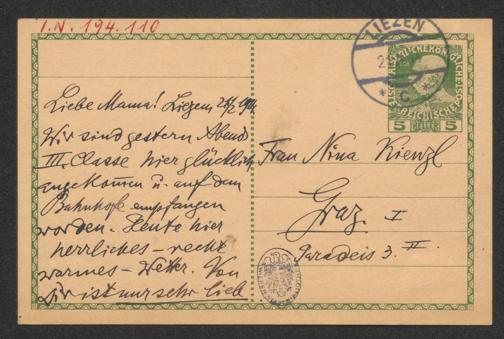 I.N. 194.110
LIEZEN
5 HELLER 5
Liebe Mama! Liezen, 
Wir sind gestern Abend
III. Classe hier glücklich
angekommen u. auf dem
Bahnhofe empfangen
worden. Heute hier
herrliches - recht
warmes - Wetter. Von
Dir ist nur sehr lieb
Frau Nina Kienzl
Graz. I
Paradeis 3. II.